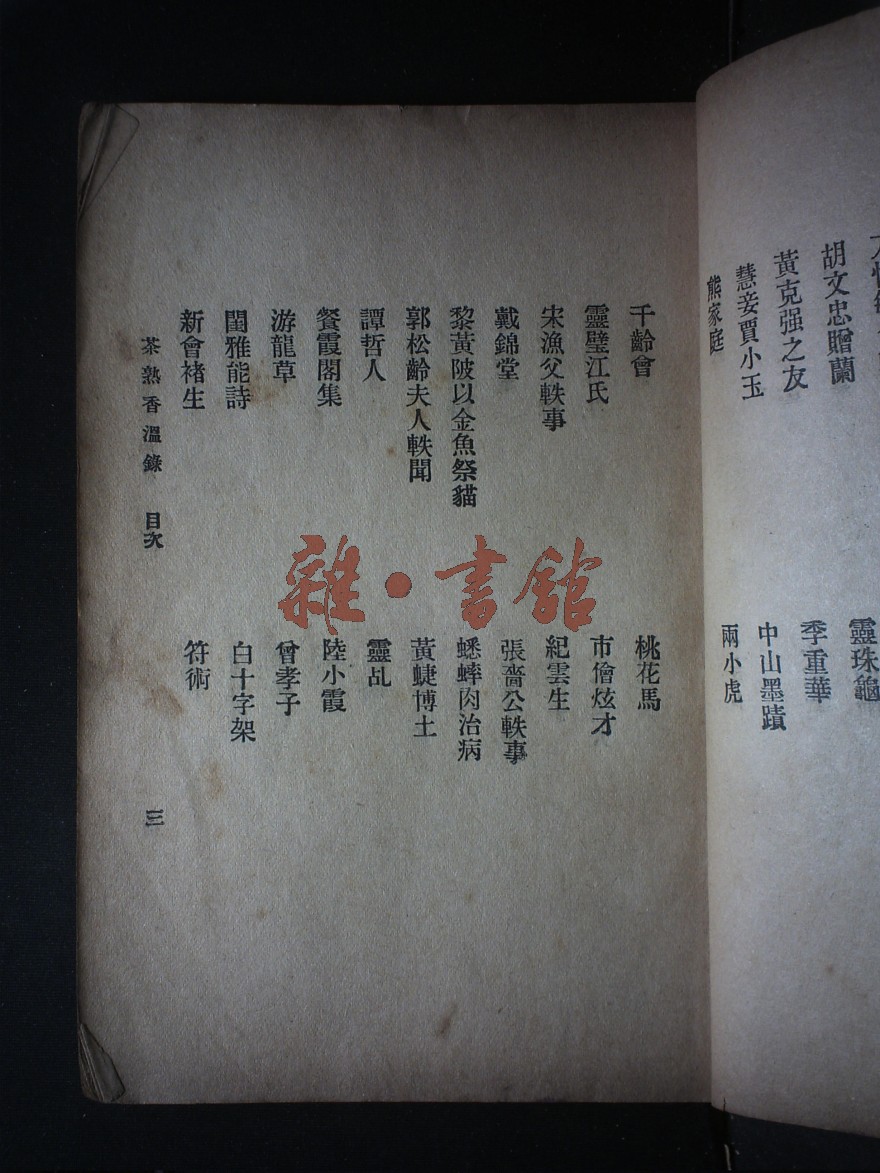 胡文忠贈蘭
黃克强之友
慧妾賈小玉
熊家庭
靈珠龜
季重華
中山墨蹟
兩小虎
千齡會
靈璧江氏
宋漁父軼事
戴錦堂
黎黃陂以金魚祭貓
郭松齡夫人軼聞
譚哲人
餐霞閣集
游龍草
閨雅能詩
新會褚生
桃花馬
市儈炫才
紀雲生
張嗇公軼事
蟋蟀肉治病
黃蜨博士
靈乩
陸小霞
曾孝子
白十字架
符術
茶熟香溫錄 目次
三
雜·書館